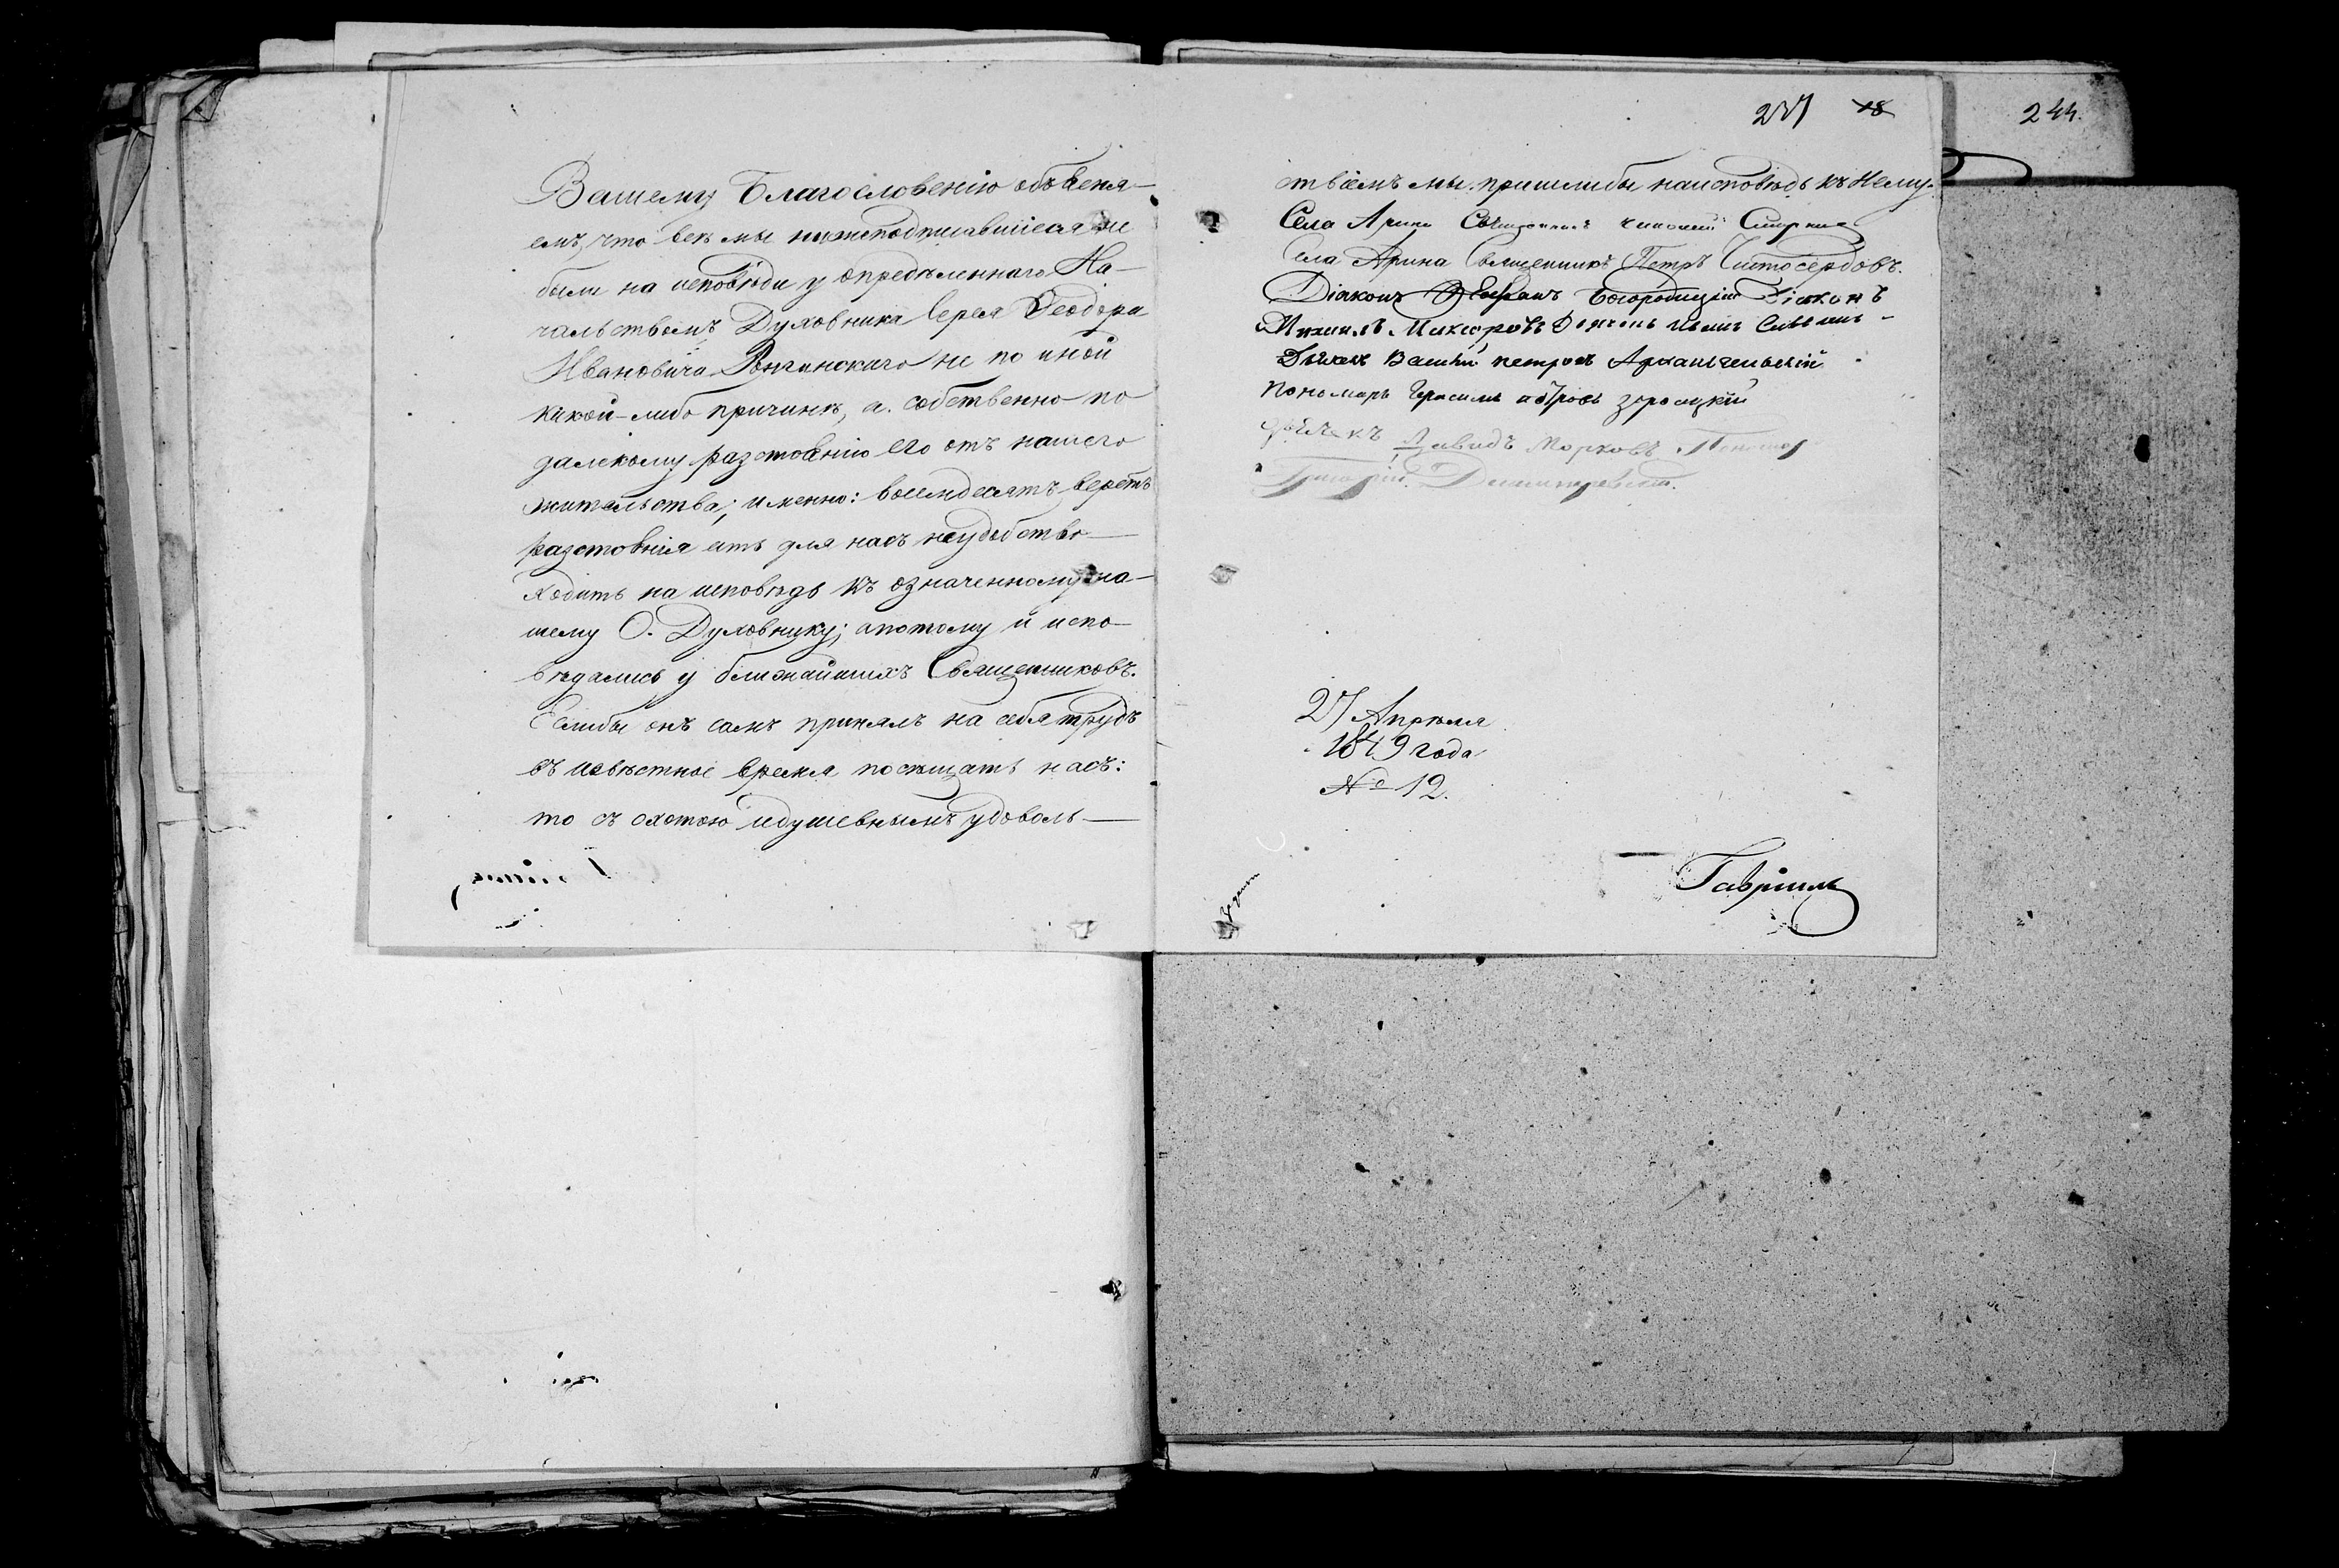 Вашему Благословенію объвеня-
емъ, что всѣ мы нижеподписавшіеся не
были на исповѣди у опредѣленнаго На-
чальствомъ Духовника Іерея Ѳеодора
Ивановича не по иной
какой-либо причинѣ, а собственно по
далекому разстоянію его отъ нашего
жительства; именно: восемдесятъ верстъ
разстоянія есть для насъ неудобство
ходить на исповѣдь къ означенному на-
шему О. Духовнику; апотому и испо-
вѣдались у ближайшихъ Священниковъ.
Еслибы онъ самъ принялъ на себя трудъ
въ извѣстное время посѣщать насъ:
то съ охотою идушевнымъ удоволь-
237 18
244.
ствіемъ мы пришлибы наисповѣдь къ Нему.
Села Арина Священникъ Смирнов
Села Арина Священникъ Петръ Чистосердовъ.
Діаконъ Богородицкій Діаконъ
Михаилъ
Дьячек Василій петровъ Архангельскій
Пономарь Герасимъ
Давидъ Морковъ
Григорій
27 Апрѣля
1849 года
№ 12.
Гавріилъ